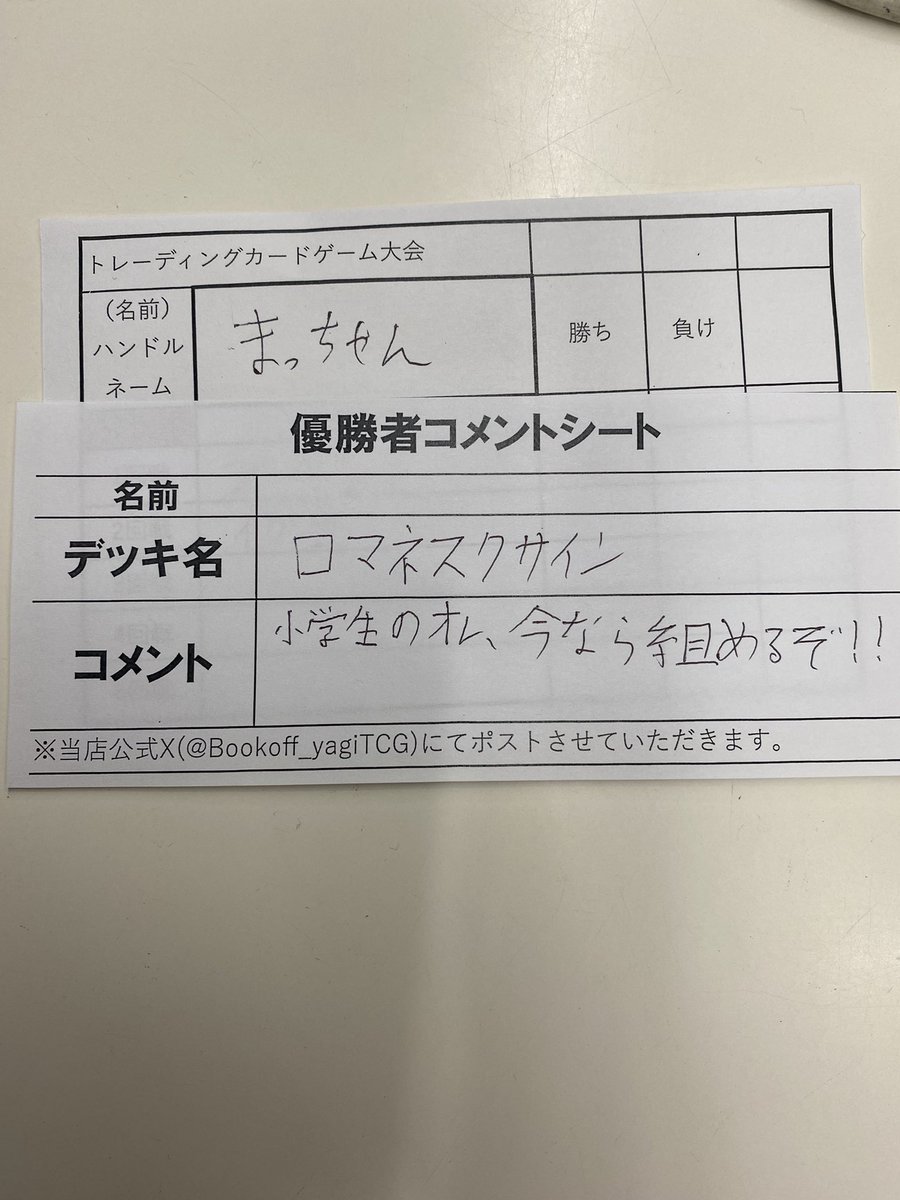 トレーディングカードゲーム大会
(名前)
ハンドル
ネーム
まっちせん
勝ち
負け
優勝者コメントシート
名前
デッキ名
ロマネスクサイン
コメント
小学生のオレ、今なら組めるぞ!!
※当店公式X(@Bookoff_yagiTCG)にてポストさせていただきます。